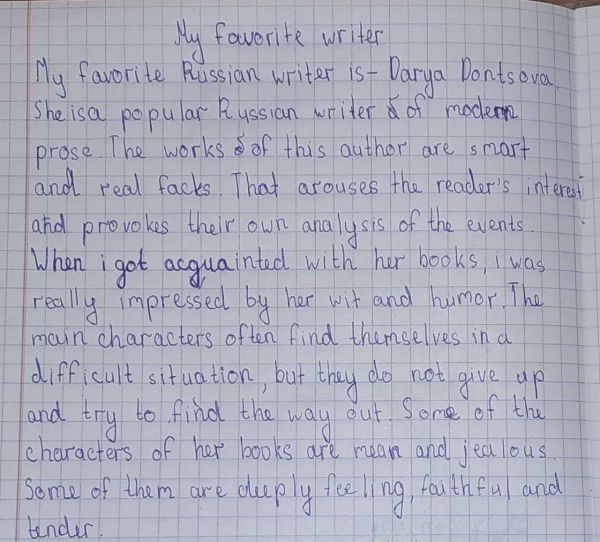 My favorite writer
My favorite Russian writer is – Darya Dontsova.
She is a popular Russian writer of modern
prose. The works of this author are smart
and real facks. That arouses the reader's interest
and provokes their own analysis of the events.
When i got acquainted with her books, i was
really impressed by her wit and humor. The
main characters often find themselves in a
difficult situation, but they do not give up
and try to find the way out. Some of the
characters of her books are mean and jealous.
Some of them are deeply feeling, faithful and
tender.